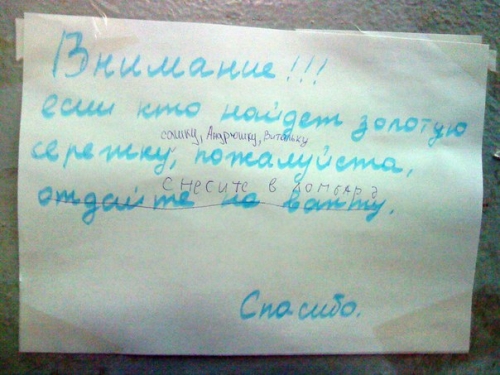 Внимание!!!
если кто найдет золотую
сашку, Андрюшку, Витальку
сережку, пожалуйста,
снесите в ломбард
отдайте на вахту.
Спасибо.